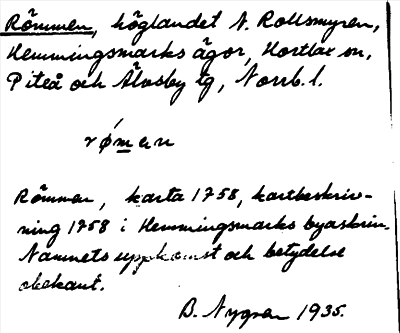 Römmen, höglandet N. Rollsmyren,
Hemmingsmarks ägor, Hortlax sn,
Piteå och Älvsby tg, Norrb. l.
römen
Römmen, karta 1758, kartbeskriv-
ning 1758 i Hemmingsmarks byaskrin.
Namnets uppkomst och betydelse
obekant.
B. Nygren 1935.